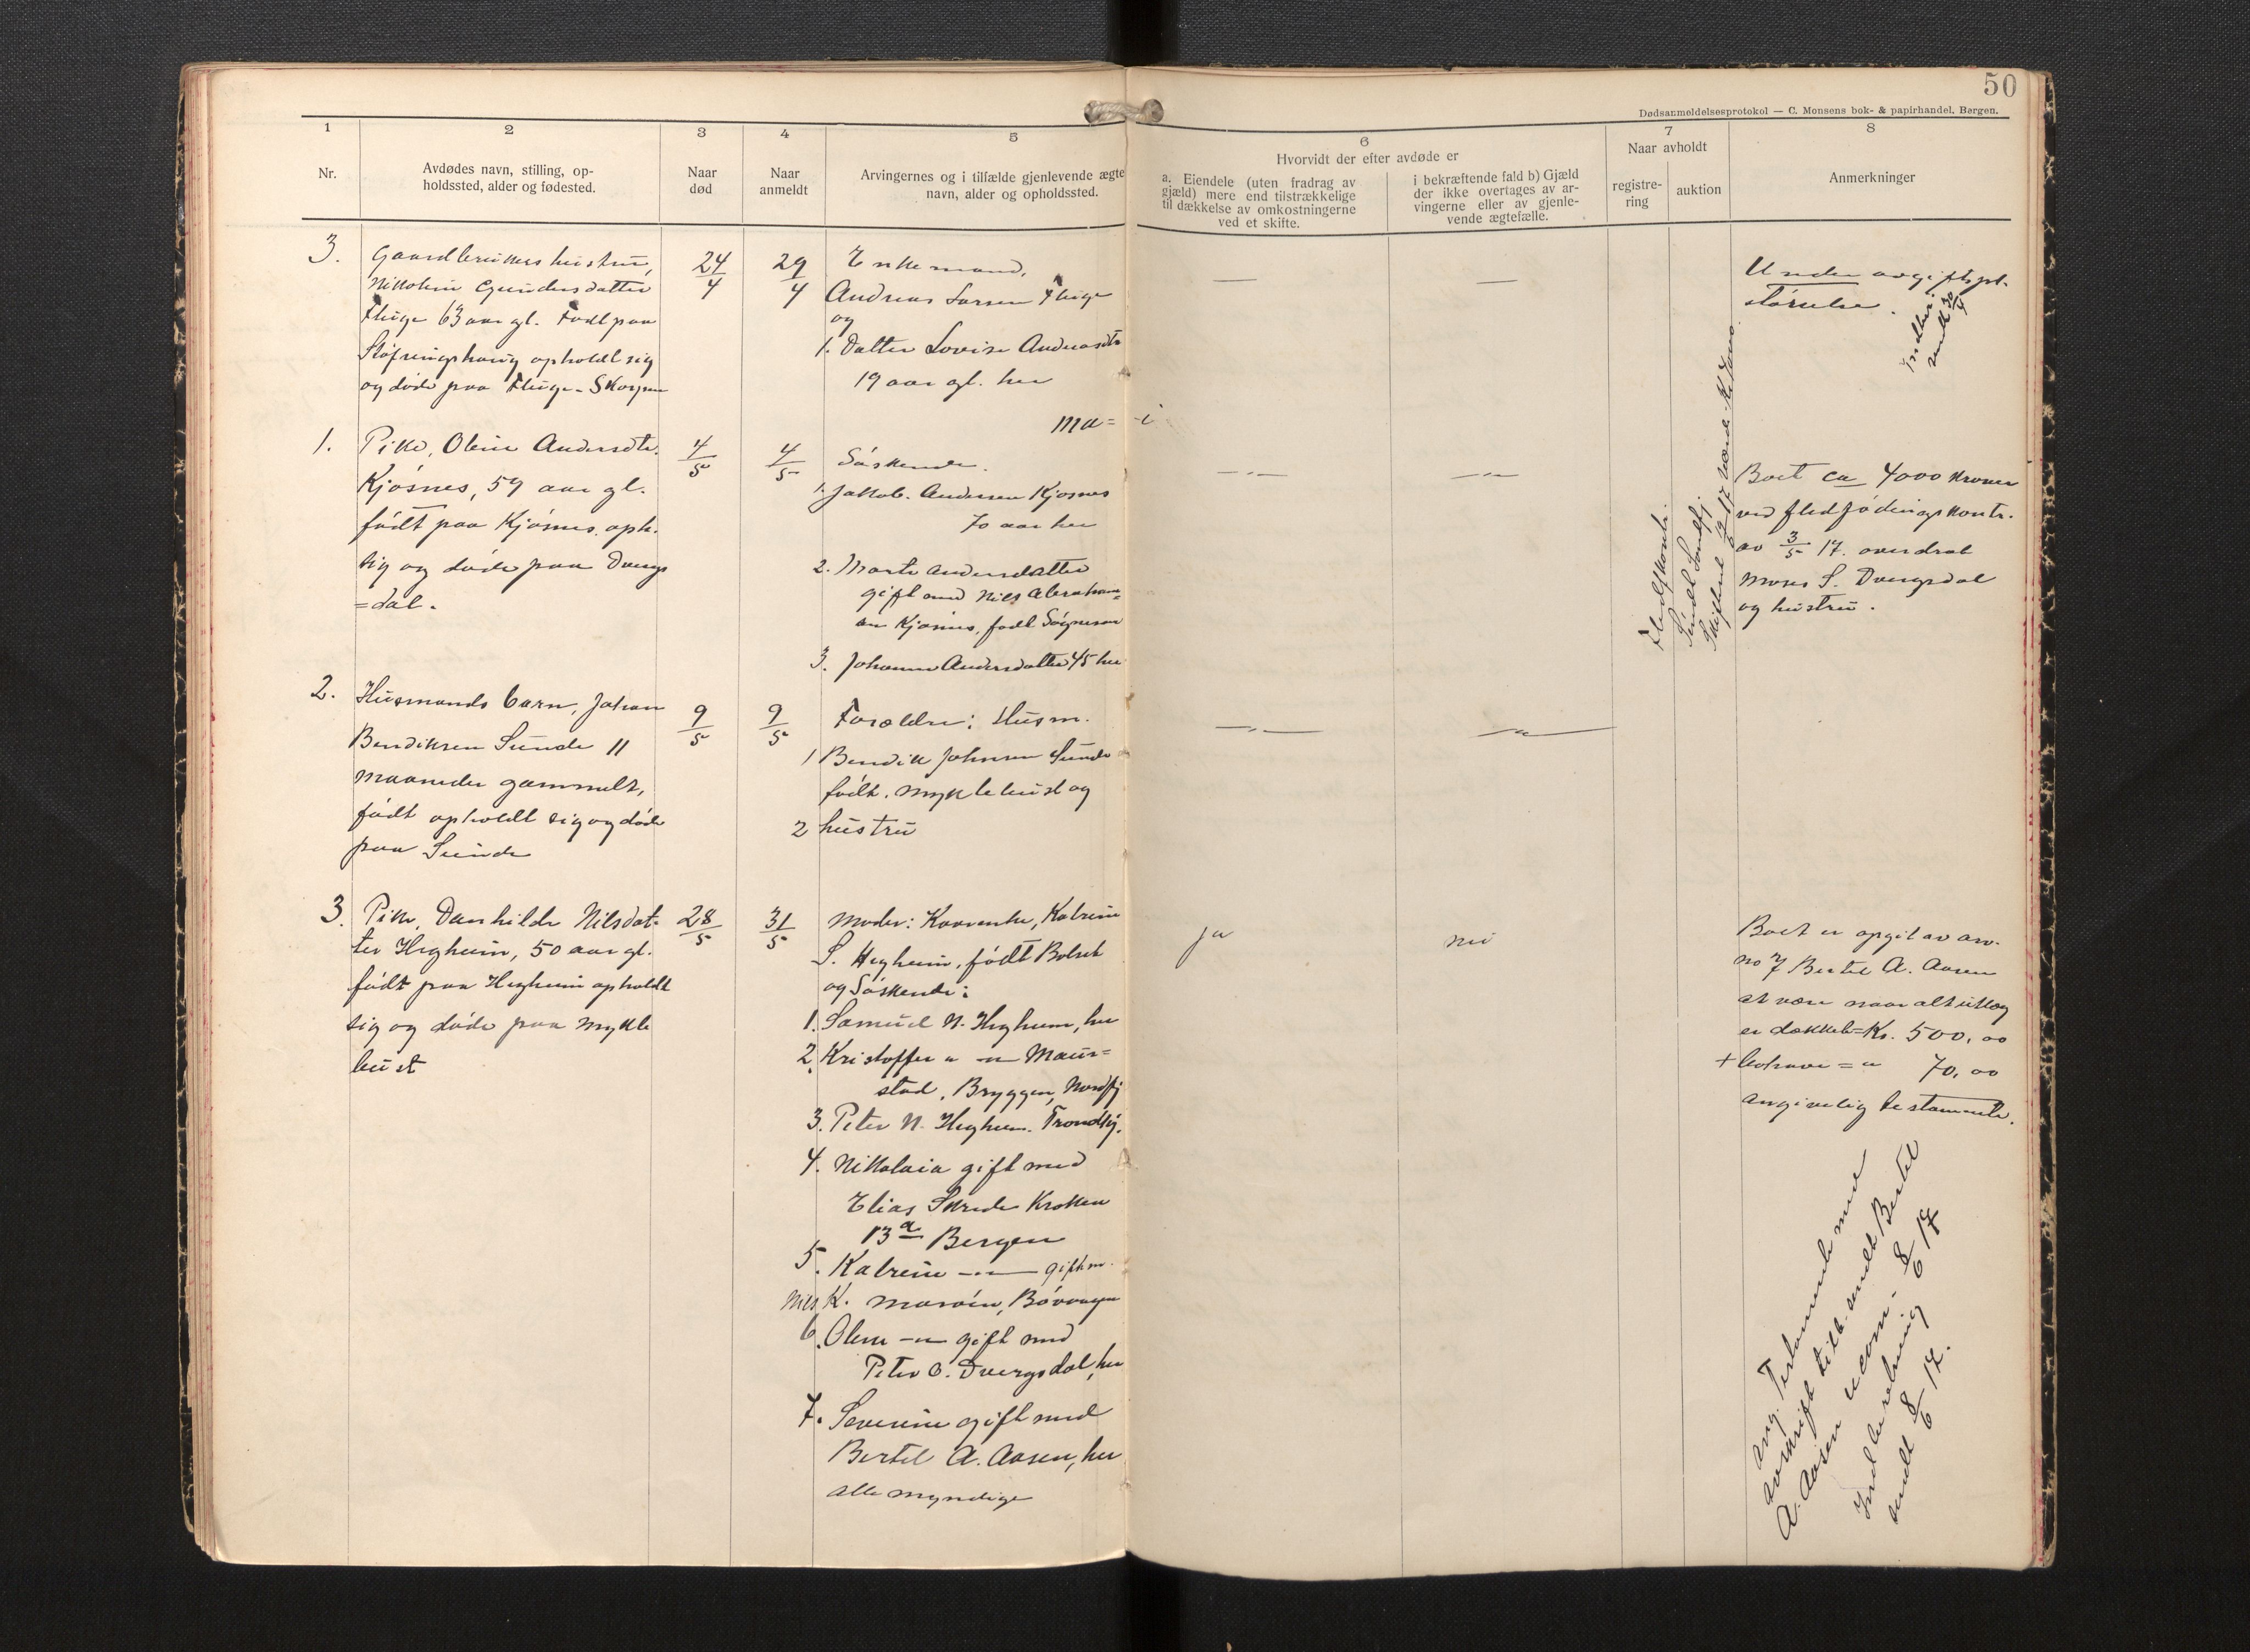 50
Dødsanmeldelsesprotokol — C. Monsens bok- & papirhandel, Bergen.
1
Nr.
2
Avdødes navn, stilling, op-
holdssted, alder og fødested.
3
Naar
død
4
Naar
anmeldt
5
Arvingernes og i tilfælde gjenlevende ægte
navn, alder og opholdssted.
6
Hvorvidt der efter avdøde er
a. Eiendele (uten fradrag av
gjæld) mere end tilstrækkelige
til dækkelse av omkostningerne
ved et skifte.
i bekræftende fald b) Gjæld
der ikke overtages av ar-
vingerne eller av gjenle-
vende ægtefælle.
7
Naar avholdt
registre-
ring
auktion
8
Anmerkninger
3.
Gaardbrukers hustru,
Nikoline Gundersdatter
Fluge 63 aar gl. Født paa
Støfringshaug opholdt sig
og døde paa Fluge-Skorpen
24/4
29/4
Enkemand,
Andreas Larsen Fluge
og
1. Datter Lovise Andreasdtr
19 aar gl. her
—
—
Under avgiftspl.
størrelse.
Indber.
sendt 30/4
Ma=i
1.
Pike, Oline Andersdtr.
Kjøsnes, 59 aar gl.
født paa Kjøsnes oph.
sig og døde paa Dvergs
=dal.
4/5
4/5
Søskende.
1. Jakob Andersen Kjøsnes
70 aar her
2. Marte Andersdatter
gift med Nils Abraham=
sen Kjøsnes, født Søgnesen
3. Johanne Andersdatter 45 her
—"—
—"—
Sundl Sondfj.
Boet ca 4000 kroner
ved fledføringskontr.
av 3/5 17. overdrat
Moses S. Dvergsdal
og hustru.
2.
Husmands barn, Johan
Bendiksen Sunde 11
maaneder gammelt,
født opholdt sig og døde
paa Sunde
9/5
9/5
Forældre: Husm.
1 Bendik Johnsen Sunde
født. Myklebust og
2 hustru
—"—
—"—
3.
Pike, Danhilde Nilsdat-
ter Hegheim, 50 aar gl.
født paa Hegheim opholdt
sig og døde paa Mykle
bust
28/5
31/5
Moder: Kaarenke, Katrine
S. Hegheim, født Bolset
og Søskende:
1. Samuel N. Hegheim, her
2. Kristoffer " —"— Maur=
stad, Bryggen, Nordfj
3. Peter N. Hegheim. Trondhj.
4. Nikolaia gift med
Elias Skrede Kroken
13a Bergen
5. Katrine —"— gift m.
Nils K. Marøen, Bøvaagen
6. Oline —"— gift med
Peter O. Dvergsdal, her
7. Severine gift med
Bertel A. Aasen, her
alle myndige
ja
nei
Boet er opgit av arv.
no 7 Bertel A. Aasen
at være naar alt utlæg
er dækket = Kr. 500,00
+ løsøre = " 70,00
angivelig testamente.
Ang. Testamente med
avskrift tilb. sendt Bertel
A. Aasen 8/6 17
Indberetning
sendt 8/6 17.